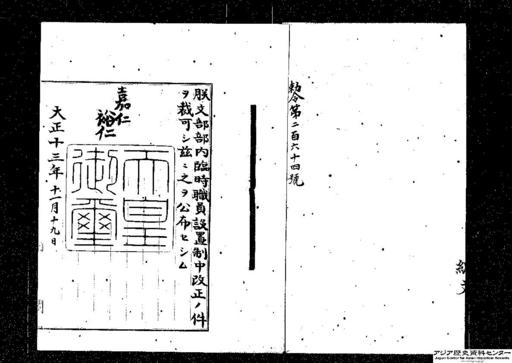 勅令第二百六十四號
朕文部部内臨時職員設置制中改正ノ件
ヲ裁可シ茲ニ之ヲ公布セシム
嘉仁
裕仁
天皇
御璽
大正十三年十一月十九日
アジア歴史資料センター
Japan Center for Asian Historical Records